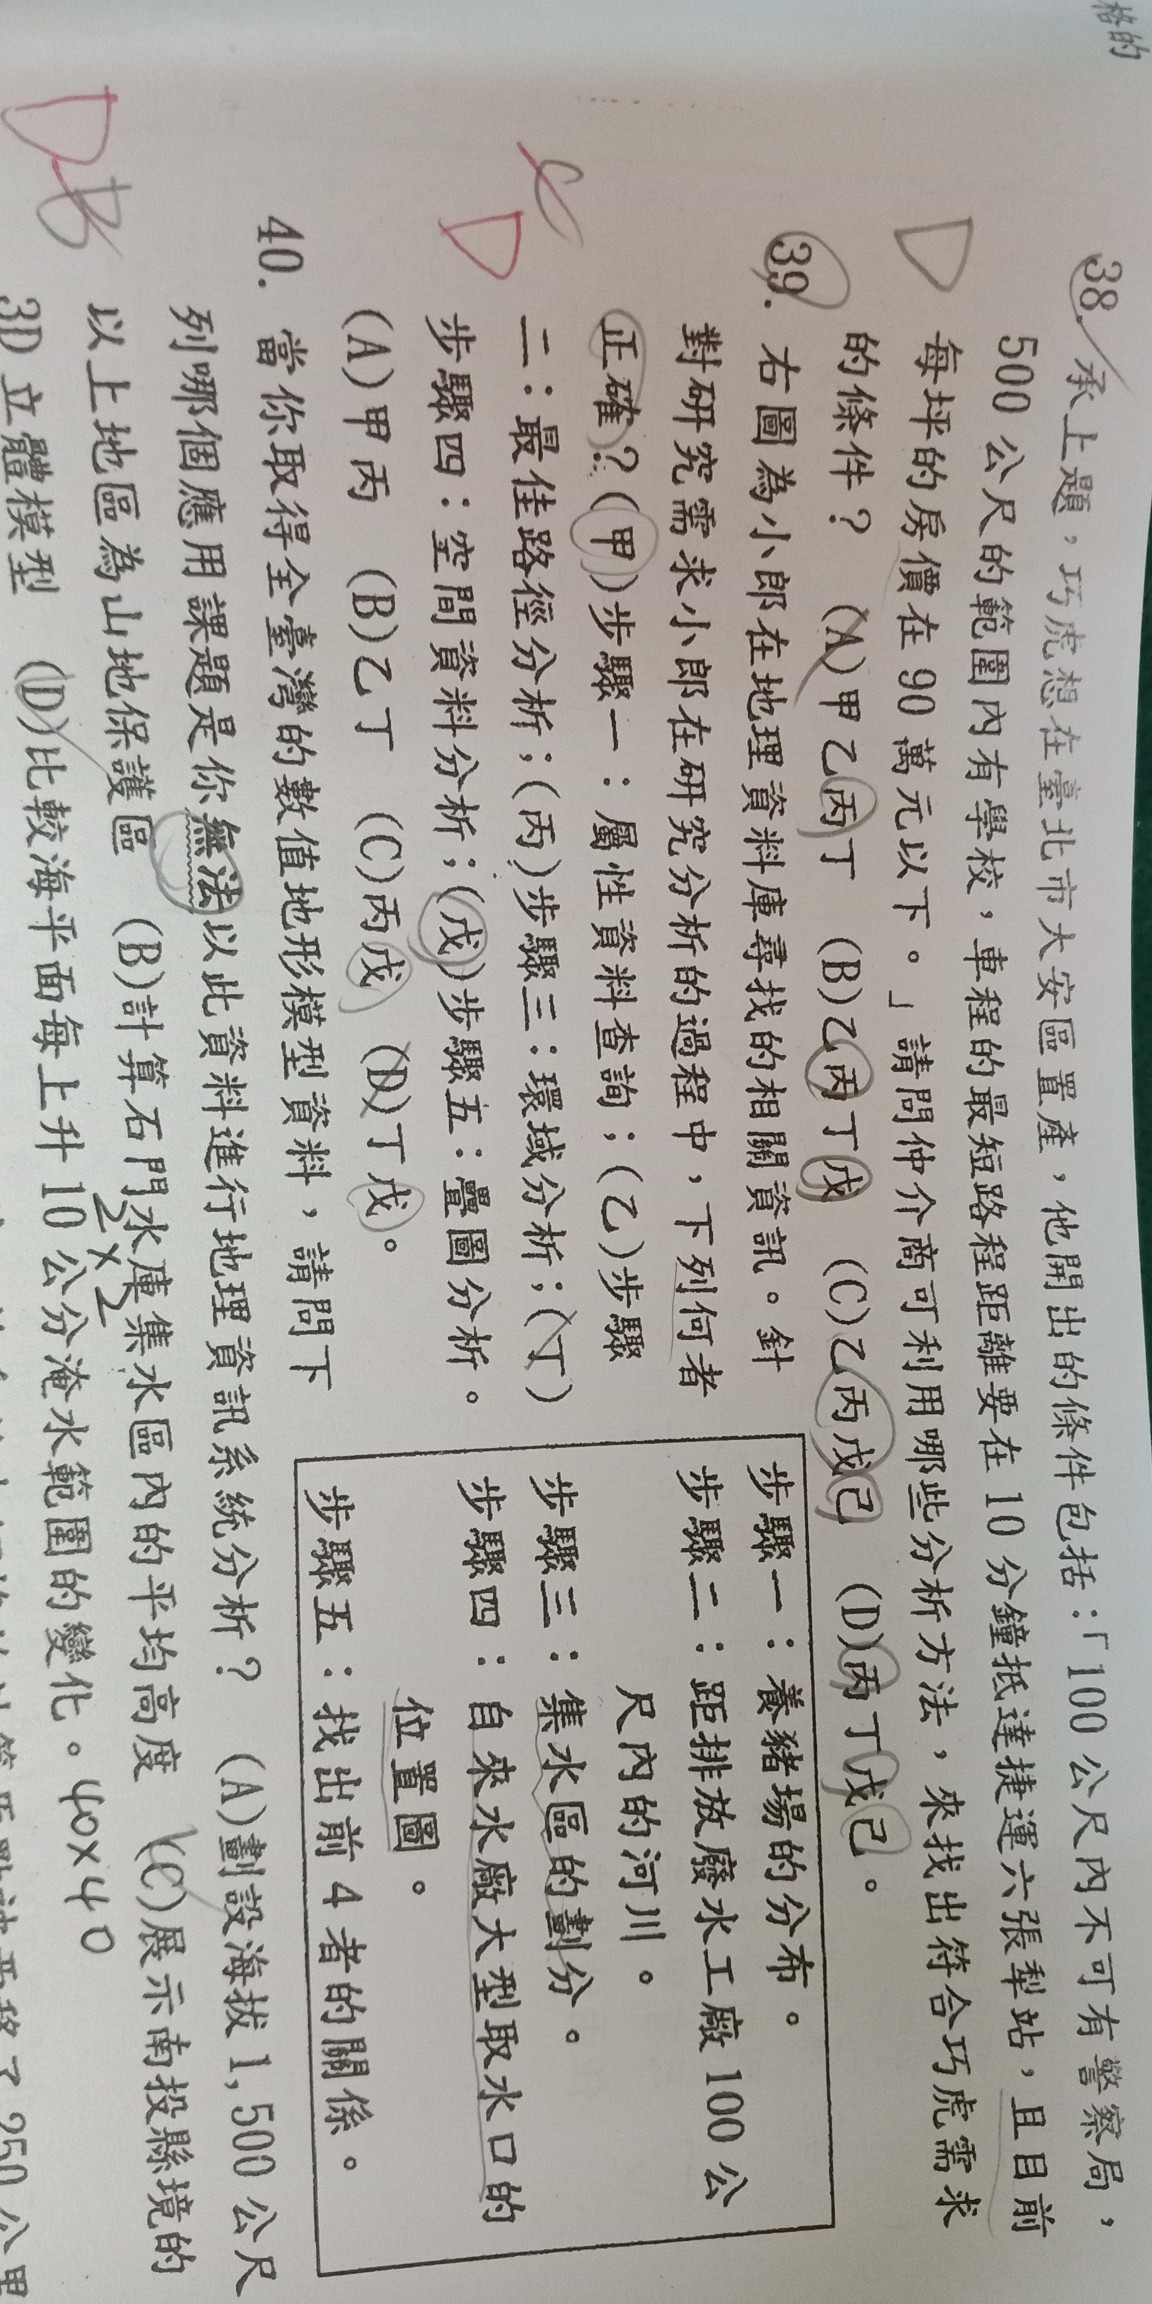 格的
38. 承上題，巧虎想在臺北市大安區置產，他開出的條件包括：「100 公尺內不可有警察局，
500 公尺的範圍內有學校，車程的最短路程距離要在 10 分鐘抵達捷運六張犁站，且目前
每坪的房價在 90 萬元以下。」請問仲介商可利用哪些分析方法，來找出符合巧虎需求
D
的條件？ (A)甲乙丙丁 (B)乙丙丁戊 (C)乙丙戊己 (D)丙丁戊己。
39. 右圖為小郎在地理資料庫尋找的相關資訊。針
對研究需求小郎在研究分析的過程中，下列何者
正確？(甲)步驟一：屬性資料查詢；(乙)步驟
二：最佳路徑分析；(丙)步驟三：環域分析；(丁)
步驟四：空間資料分析；(戊)步驟五：疊圖分析。
(A)甲丙 (B)乙丁 (C)丙戊 (D)丁戊。
D
步驟一：養豬場的分布。
步驟二：距排放廢水工廠 100 公
尺內的河川。
步驟三：集水區的劃分。
步驟四：自來水廠大型取水口的
位置圖。
步驟五：找出前 4 者的關係。
40. 當你取得全臺灣的數值地形模型資料，請問下
列哪個應用課題是你無法以此資料進行地理資訊系統分析？ (A)劃設海拔 1,500 公尺
以上地區為山地保護區 (B)計算石門水庫集水區內的平均高度 (C)展示南投縣境的
D B
2×2
3D 立體模型 (D)比較海平面每上升 10 公分淹水範圍的變化。
40×40